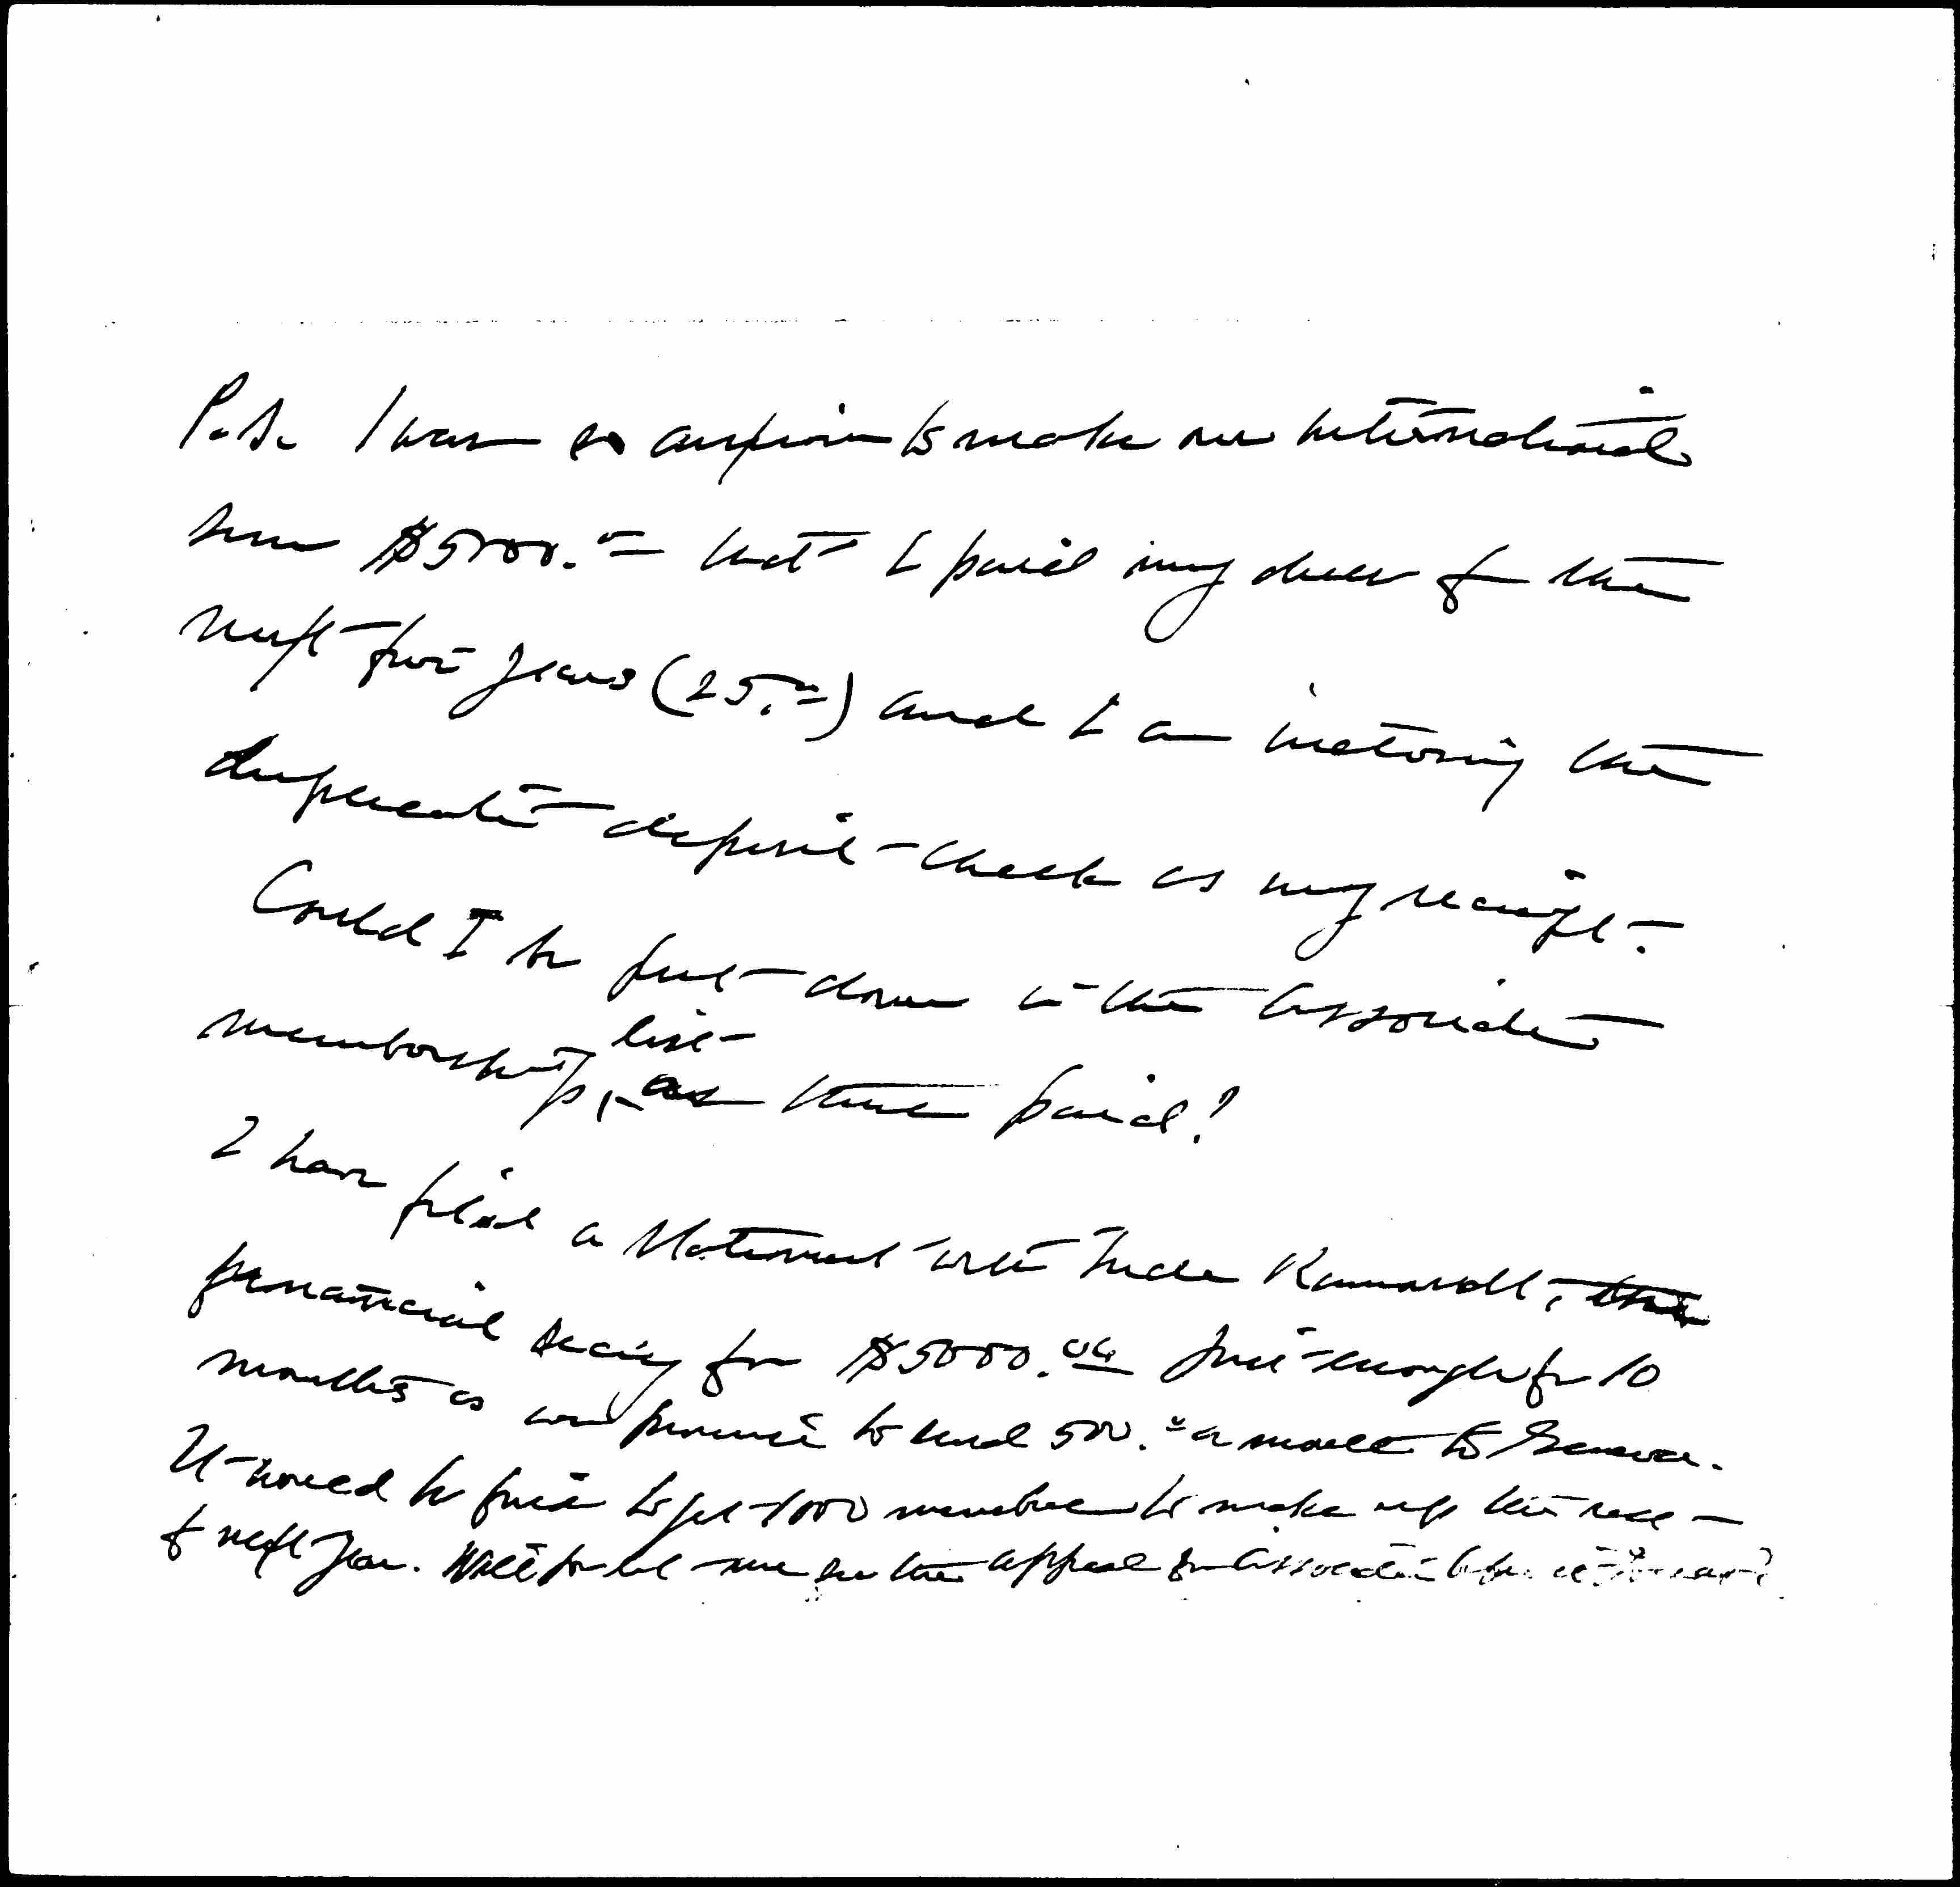 P.S. I was so anxious to make our international
sum $5000.00 that I paid my dues for the
next five years (25.00) and I am the
duplicate deposit-check as my receipt.
Could I be put down in the Associate
membership list, as thus paid?
I have filed a statement with Kammroll,
financial sec'y for $5000.00 just enough for 10
months as we promise to send 500.00 a month to Geneva.
It would be fine to get 1000 members to make up the rest
of next year. Will you let me see the appeal for Associate